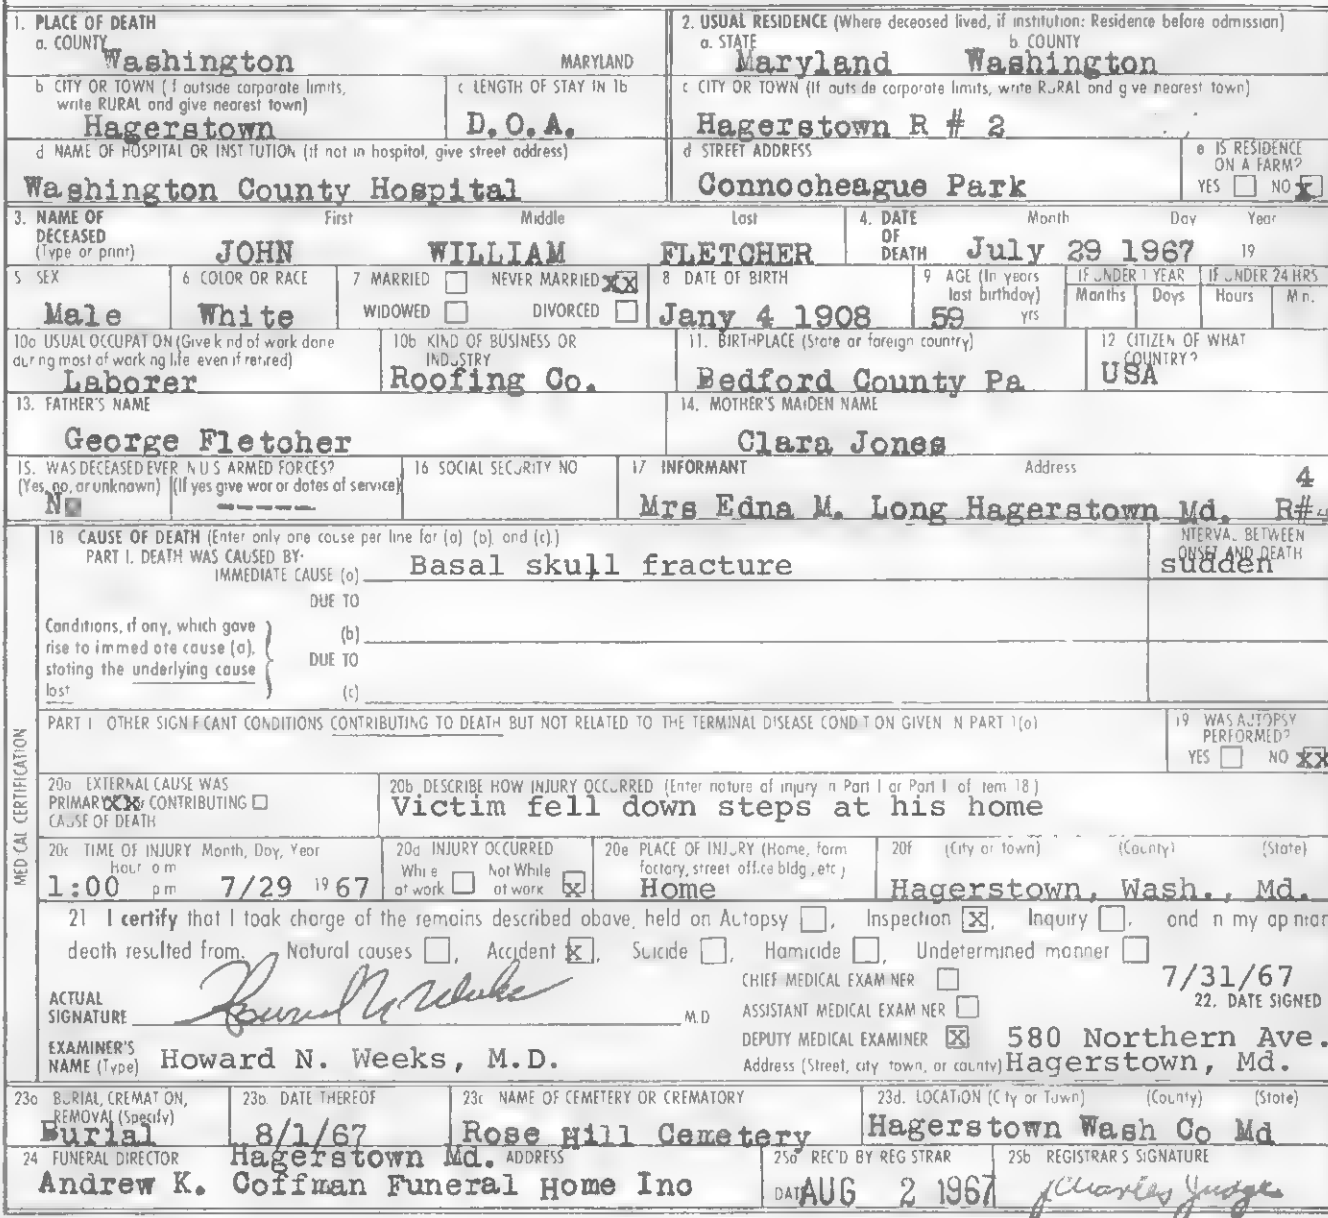 1. PLACE OF DEATH
a. COUNTY
Washington MARYLAND
2. USUAL RESIDENCE (Where deceased lived, if institution: Residence before admission)
a. STATE b COUNTY
Maryland Washington
b CITY OR TOWN (If outside corporate limits,
write RURAL and give nearest town)
Hagerstown
c LENGTH OF STAY IN 1b
D.O.A.
c CITY OR TOWN (If outside corporate limits, write RURAL and give nearest town)
Hagerstown R # 2
d NAME OF HOSPITAL OR INSTITUTION (If not in hospital, give street address)
Washington County Hospital
d STREET ADDRESS
Connocheague Park
e IS RESIDENCE
ON A FARM?
YES NO x
3. NAME OF
DECEASED
(Type or print)
First Middle Last
JOHN WILLIAM FLETCHER
4. DATE
OF
DEATH
Month Day Year
July 29 1967 19
5 SEX
Male
6 COLOR OR RACE
White
7 MARRIED NEVER MARRIED XX
WIDOWED DIVORCED
8 DATE OF BIRTH
Jany 4 1908
9 AGE (In years
last birthday)
59 yrs
IF UNDER 1 YEAR
Months Days
IF UNDER 24 HRS
Hours Min.
10a USUAL OCCUPATION (Give kind of work done
during most of working life even if retired)
Laborer
10b KIND OF BUSINESS OR
INDUSTRY
Roofing Co.
11. BIRTHPLACE (State or foreign country)
Bedford County Pa
12 CITIZEN OF WHAT
COUNTRY?
USA
13. FATHER'S NAME
George Fletcher
14. MOTHER'S MAIDEN NAME
Clara Jones
15. WAS DECEASED EVER IN U S ARMED FORCES?
(Yes, no, or unknown) (If yes give war or dates of service)
-----
16 SOCIAL SECURITY NO
17 INFORMANT Address
Mrs Edna M. Long Hagerstown Md. R# 4
18 CAUSE OF DEATH (Enter only one cause per line for (a) (b) and (c).)
PART I. DEATH WAS CAUSED BY:
IMMEDIATE CAUSE (a) Basal skull fracture
INTERVAL BETWEEN
ONSET AND DEATH
sudden
DUE TO
Conditions, if any, which gave
rise to immediate cause (a),
stating the underlying cause
last
(b)
DUE TO
(c)
PART I OTHER SIGNIFICANT CONDITIONS CONTRIBUTING TO DEATH BUT NOT RELATED TO THE TERMINAL DISEASE CONDITION GIVEN IN PART 1(a)
19 WAS AUTOPSY
PERFORMED?
YES NO XX
MEDICAL CERTIFICATION
20a EXTERNAL CAUSE WAS
PRIMARY XX or CONTRIBUTING
CAUSE OF DEATH
20b DESCRIBE HOW INJURY OCCURRED (Enter nature of injury in Part I or Part I of item 18)
Victim fell down steps at his home
20c TIME OF INJURY Month, Day, Year
Hour a m
1:00 p m 7/29 19 67
20d INJURY OCCURRED
While Not While
at work at work X
20e PLACE OF INJURY (Home, farm
factory, street office bldg., etc)
Home
20f (City or town) (County) (State)
Hagerstown, Wash., Md.
21 I certify that I took charge of the remains described above, held on Autopsy , Inspection X , Inquiry , and in my opinion
death resulted from. Natural causes , Accident X , Suicide , Homicide , Undetermined manner
CHIEF MEDICAL EXAMINER
7/31/67
22. DATE SIGNED
ACTUAL
SIGNATURE Howard N Weeks M.D
ASSISTANT MEDICAL EXAMINER
DEPUTY MEDICAL EXAMINER X 580 Northern Ave.
EXAMINER'S
NAME (Type) Howard N. Weeks, M.D.
Address (Street, city town, or county) Hagerstown, Md.
23a BURIAL, CREMATION,
REMOVAL (Specify)
Burial
23b. DATE THEREOF
8/1/67
23c NAME OF CEMETERY OR CREMATORY
Rose Hill Cemetery
23d. LOCATION (City or Town) (County) (State)
Hagerstown Wash Co Md
24 FUNERAL DIRECTOR ADDRESS
Hagerstown Md.
Andrew K. Coffman Funeral Home Inc
25a REC'D BY REGISTRAR
DATE AUG 2 1967
25b REGISTRAR'S SIGNATURE
J Charles Judge